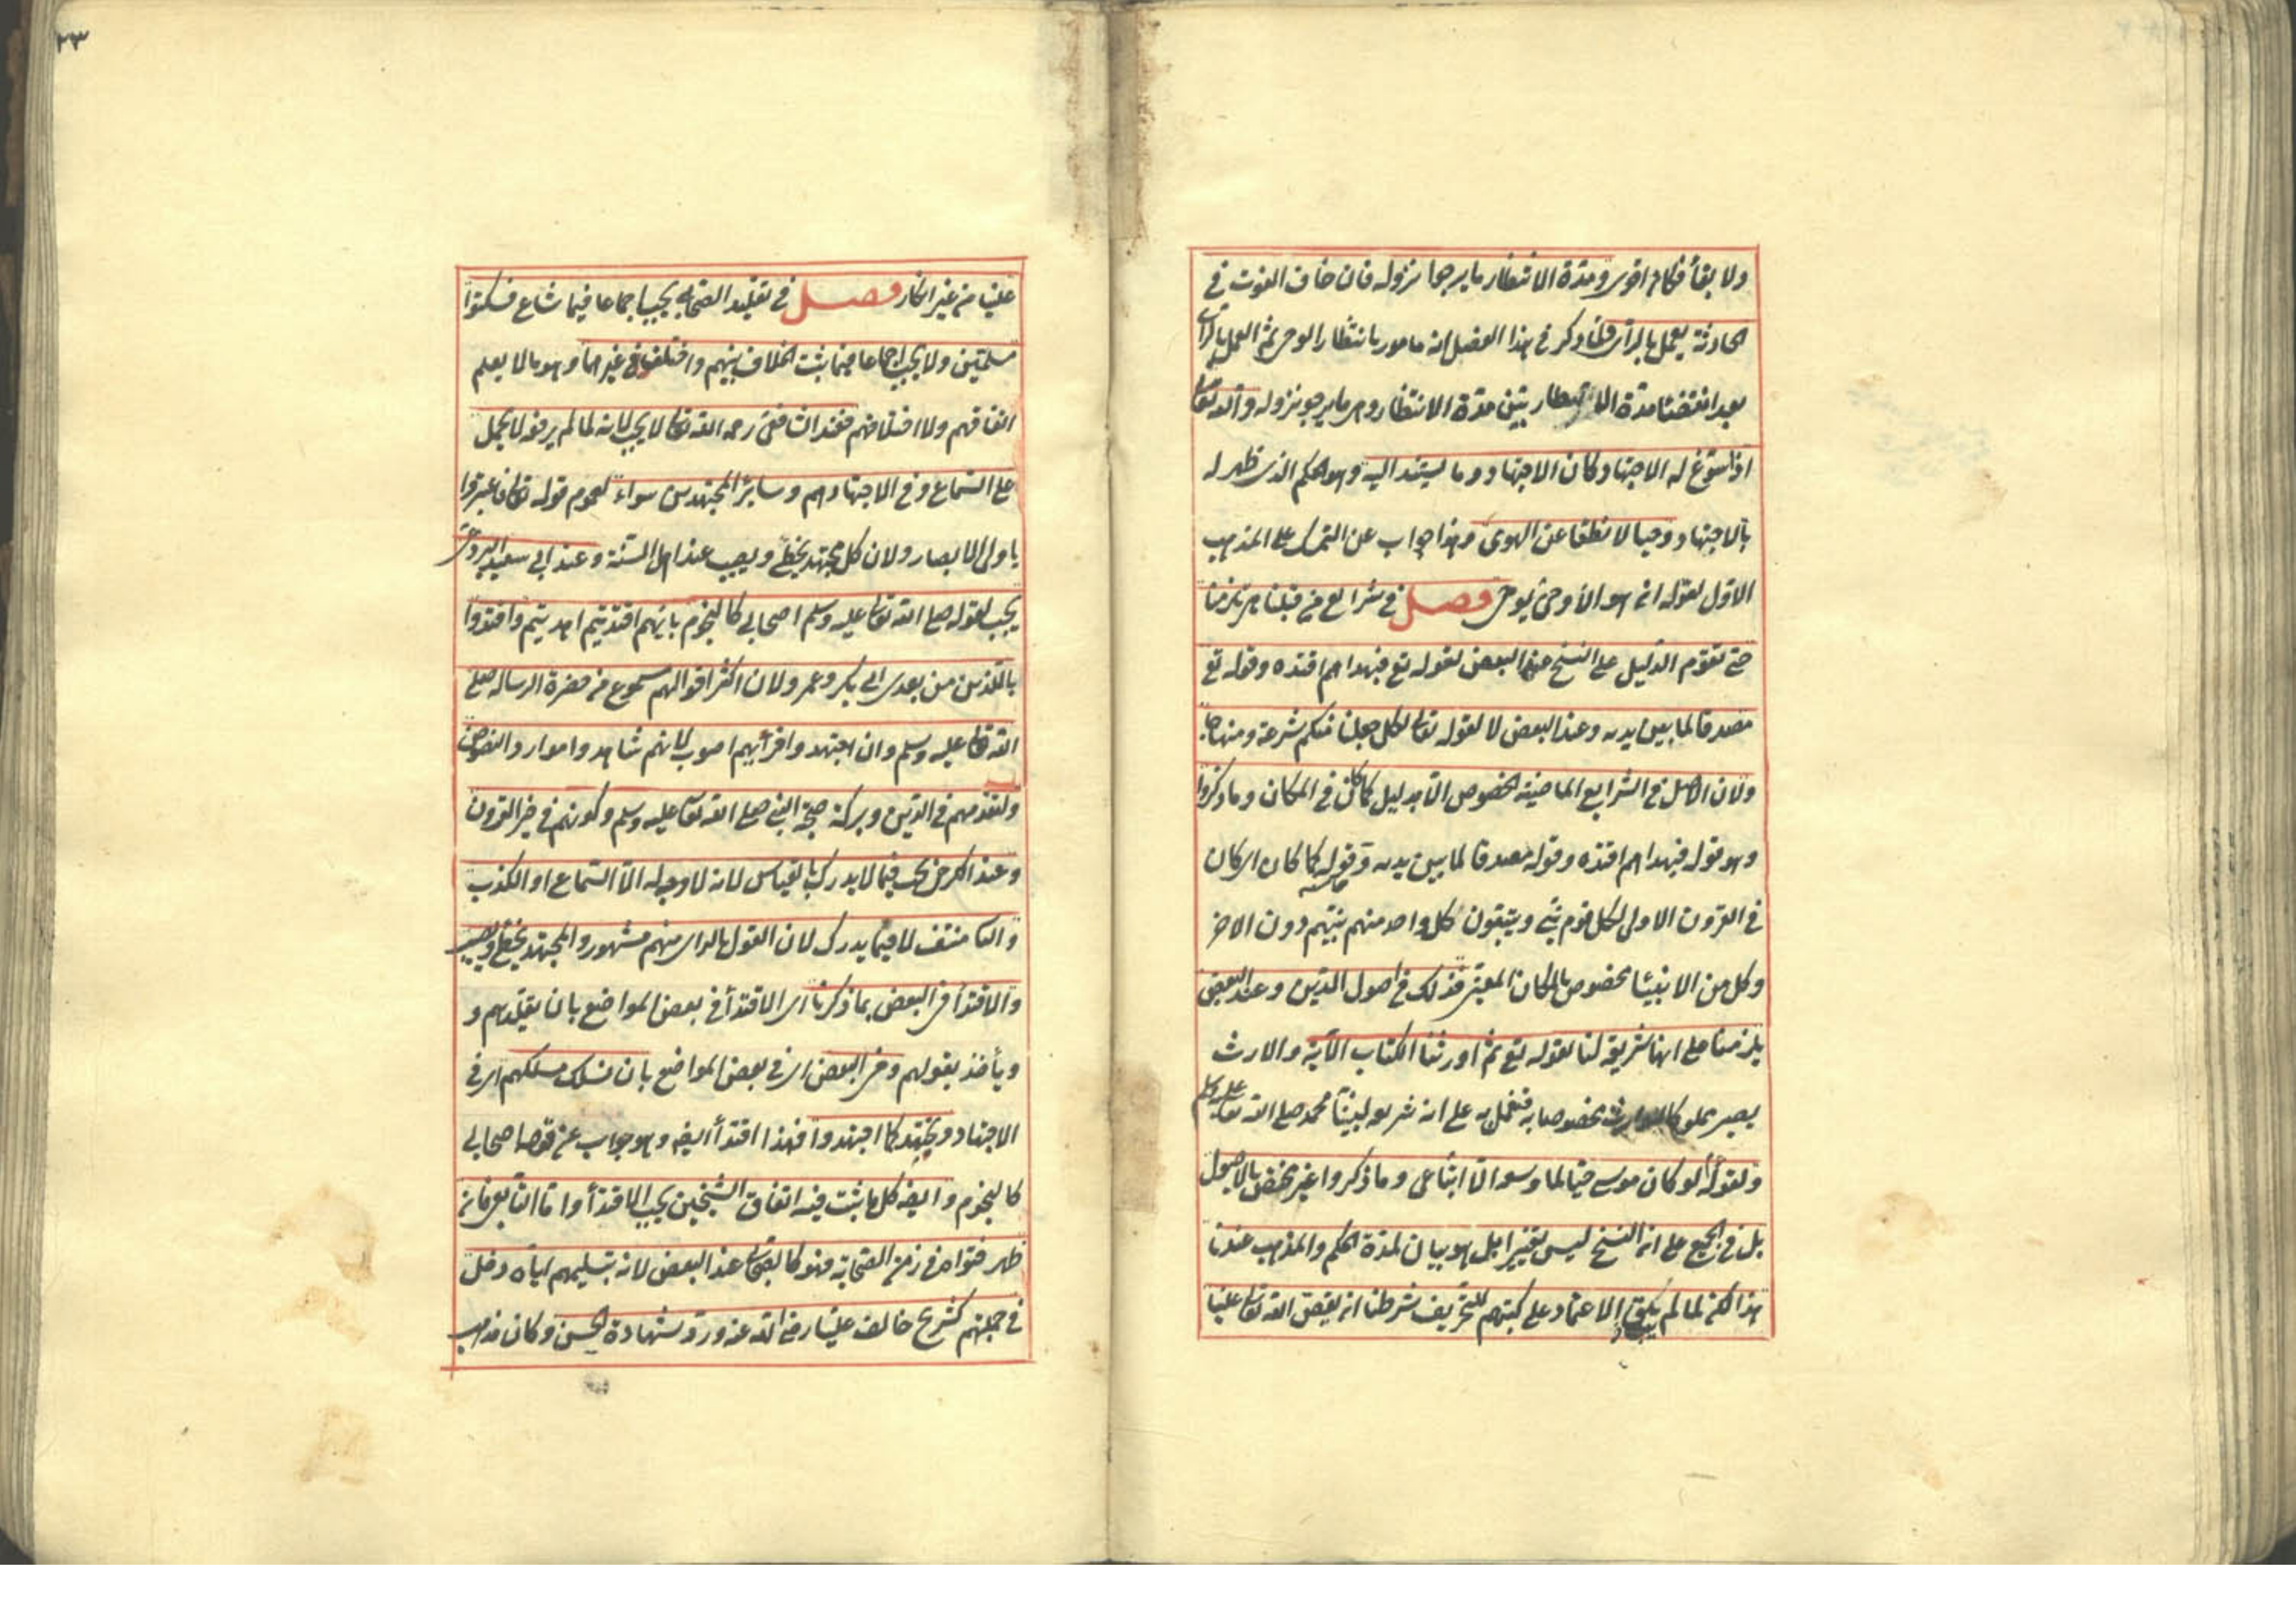 ولا بقاء فكان اقوى ومدة الانتظار ما يرجوا نزوله فان خاف الفوت في
الحادثة يعمل بالرأى ولما ذكر في هذا الفصل انه مامور بانتظار الوحى ثم العمل بالرأى
بعد انقضاء مدة الانتظار بيّن مدة الانتظار وهى ما يرجو نزوله والله تعالى
اذا سوّغ له الاجتهاد كان الاجتهاد وما يستند اليه وهو الحكم الذى ظهر له
بالاجتهاد وحيا لا نطقا عن الهوى وهذا جواب عن التمسك على المذهب
الاول بقوله ان هو الا وحى يوحى فصل في شرائع من قبلنا هى تلزمنا
حتى تقوم الدليل على النسخ عند البعض لقوله تع فبهداهم اقتده وقوله تع
مصدقا لما بين يديه وعند البعض لا لقوله تعالى لكل جعلنا منكم شرعة ومنهاجا
ولان الاصل في الشرايع الماضية الخصوص الا بدليل كما كان في المكان وما ذكروا
وهو قوله فبهداهم اقتده وقوله مصدقا لما بين يديه وقوله كما كان اى كان
في القرون الاولى لكل قوم نبي ويتبعون كل واحد منهم نبيهم دون الاخر
وكل من الانبياء مخصوص بالمكان المعين فذلك في اصول الدين وعند البعض
يلزمنا على انها شريعة لنا لقوله تع ثم اورثنا الكتاب الآية والارث
يصير مملوكا للوارث مخصوصا به فنعمل به على انه شريعة لنبينا محمد صلى الله تعالى عليه وسلم
ولقوله لو كان موسى حيا لما وسعه الا اتباعى وما ذكروا غير مختص بالاصول
بل في الجميع على ان النسخ ليس تغييرا بل هو بيان لمدة الحكم والمذهب عندنا
هذا لكن لما لم يبق الاعتماد على كتبهم للتحريف شرطنا ان يقص الله تعالى علينا
٢٣
علينا من غير انكار فصل في تقليد الصحابى يجب اجماعا فيما شاع فسكتوا
مسلمين ولا يجب اجماعا فيما ثبت الخلاف بينهم واختلف في غيرهما وهو ما لا يعلم
اتفاقهم ولا اختلافهم فعند الشافعى رحمه الله تعالى لا يجب لانه لما لم يرفعه لا يحمل
على السماع وفي الاجتهاد هم وسائر المجتهدين سواء لعموم قوله تعالى فاعتبروا
يا اولى الابصار ولان كل مجتهد يخطئ ويصيب عند اهل السنة وعند ابى سعيد البردعى
يجب لقوله صلى الله تعالى عليه وسلم اصحابى كالنجوم بايهم اقتديتم اهديتم واقتدوا
باللذين من بعدى ابى بكر وعمر ولان اكثر اقوالهم مسموع من حضرة الرسالة صلى
الله تعالى عليه وسلم وان اجتهدوا فرأيهم اصوب لانهم شاهدوا موارد النصوص
ولتقدمهم في الدين وبركة صحبة النبي صلى الله تعالى عليه وسلم وكونهم في خير القرون
وعند الكرخى يجب فيما لا يدرك بالقياس لانه لا وجه له الا السماع او الكذب
والثانى منتف لا فيما يدرك لان القول بالرأى منهم مشهور والمجتهد يخطئ ويصيب
والاقتداء في البعض بما ذكرنا اى الاقتداء في بعض المواضع بان نقلدهم و
ويأخذ بقولهم وفي البعض اى في بعض المواضع بان نسلك مسلكهم اى في
الاجتهاد ونجتهد كما اجتهدوا فهذا اقتداء ايضا وهو جواب عن قوله اصحابى
كالنجوم وايضا كل ما ثبت فيه اتفاق الشيخين يجب الاقتداء واما التابعى فان
ظهر فتواه في زمن الصحابة فهو كالصحابى عند البعض لانه بتسليمهم اياه دخل
في جملتهم كشريح خالف عليا رضى الله عنه ورد شهادة الحسن وكان مذهب